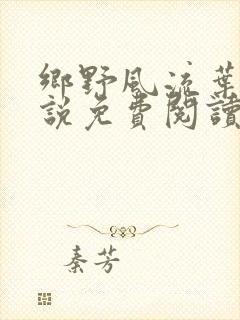 鄉野風流葉
說免費閱讀
秦芳